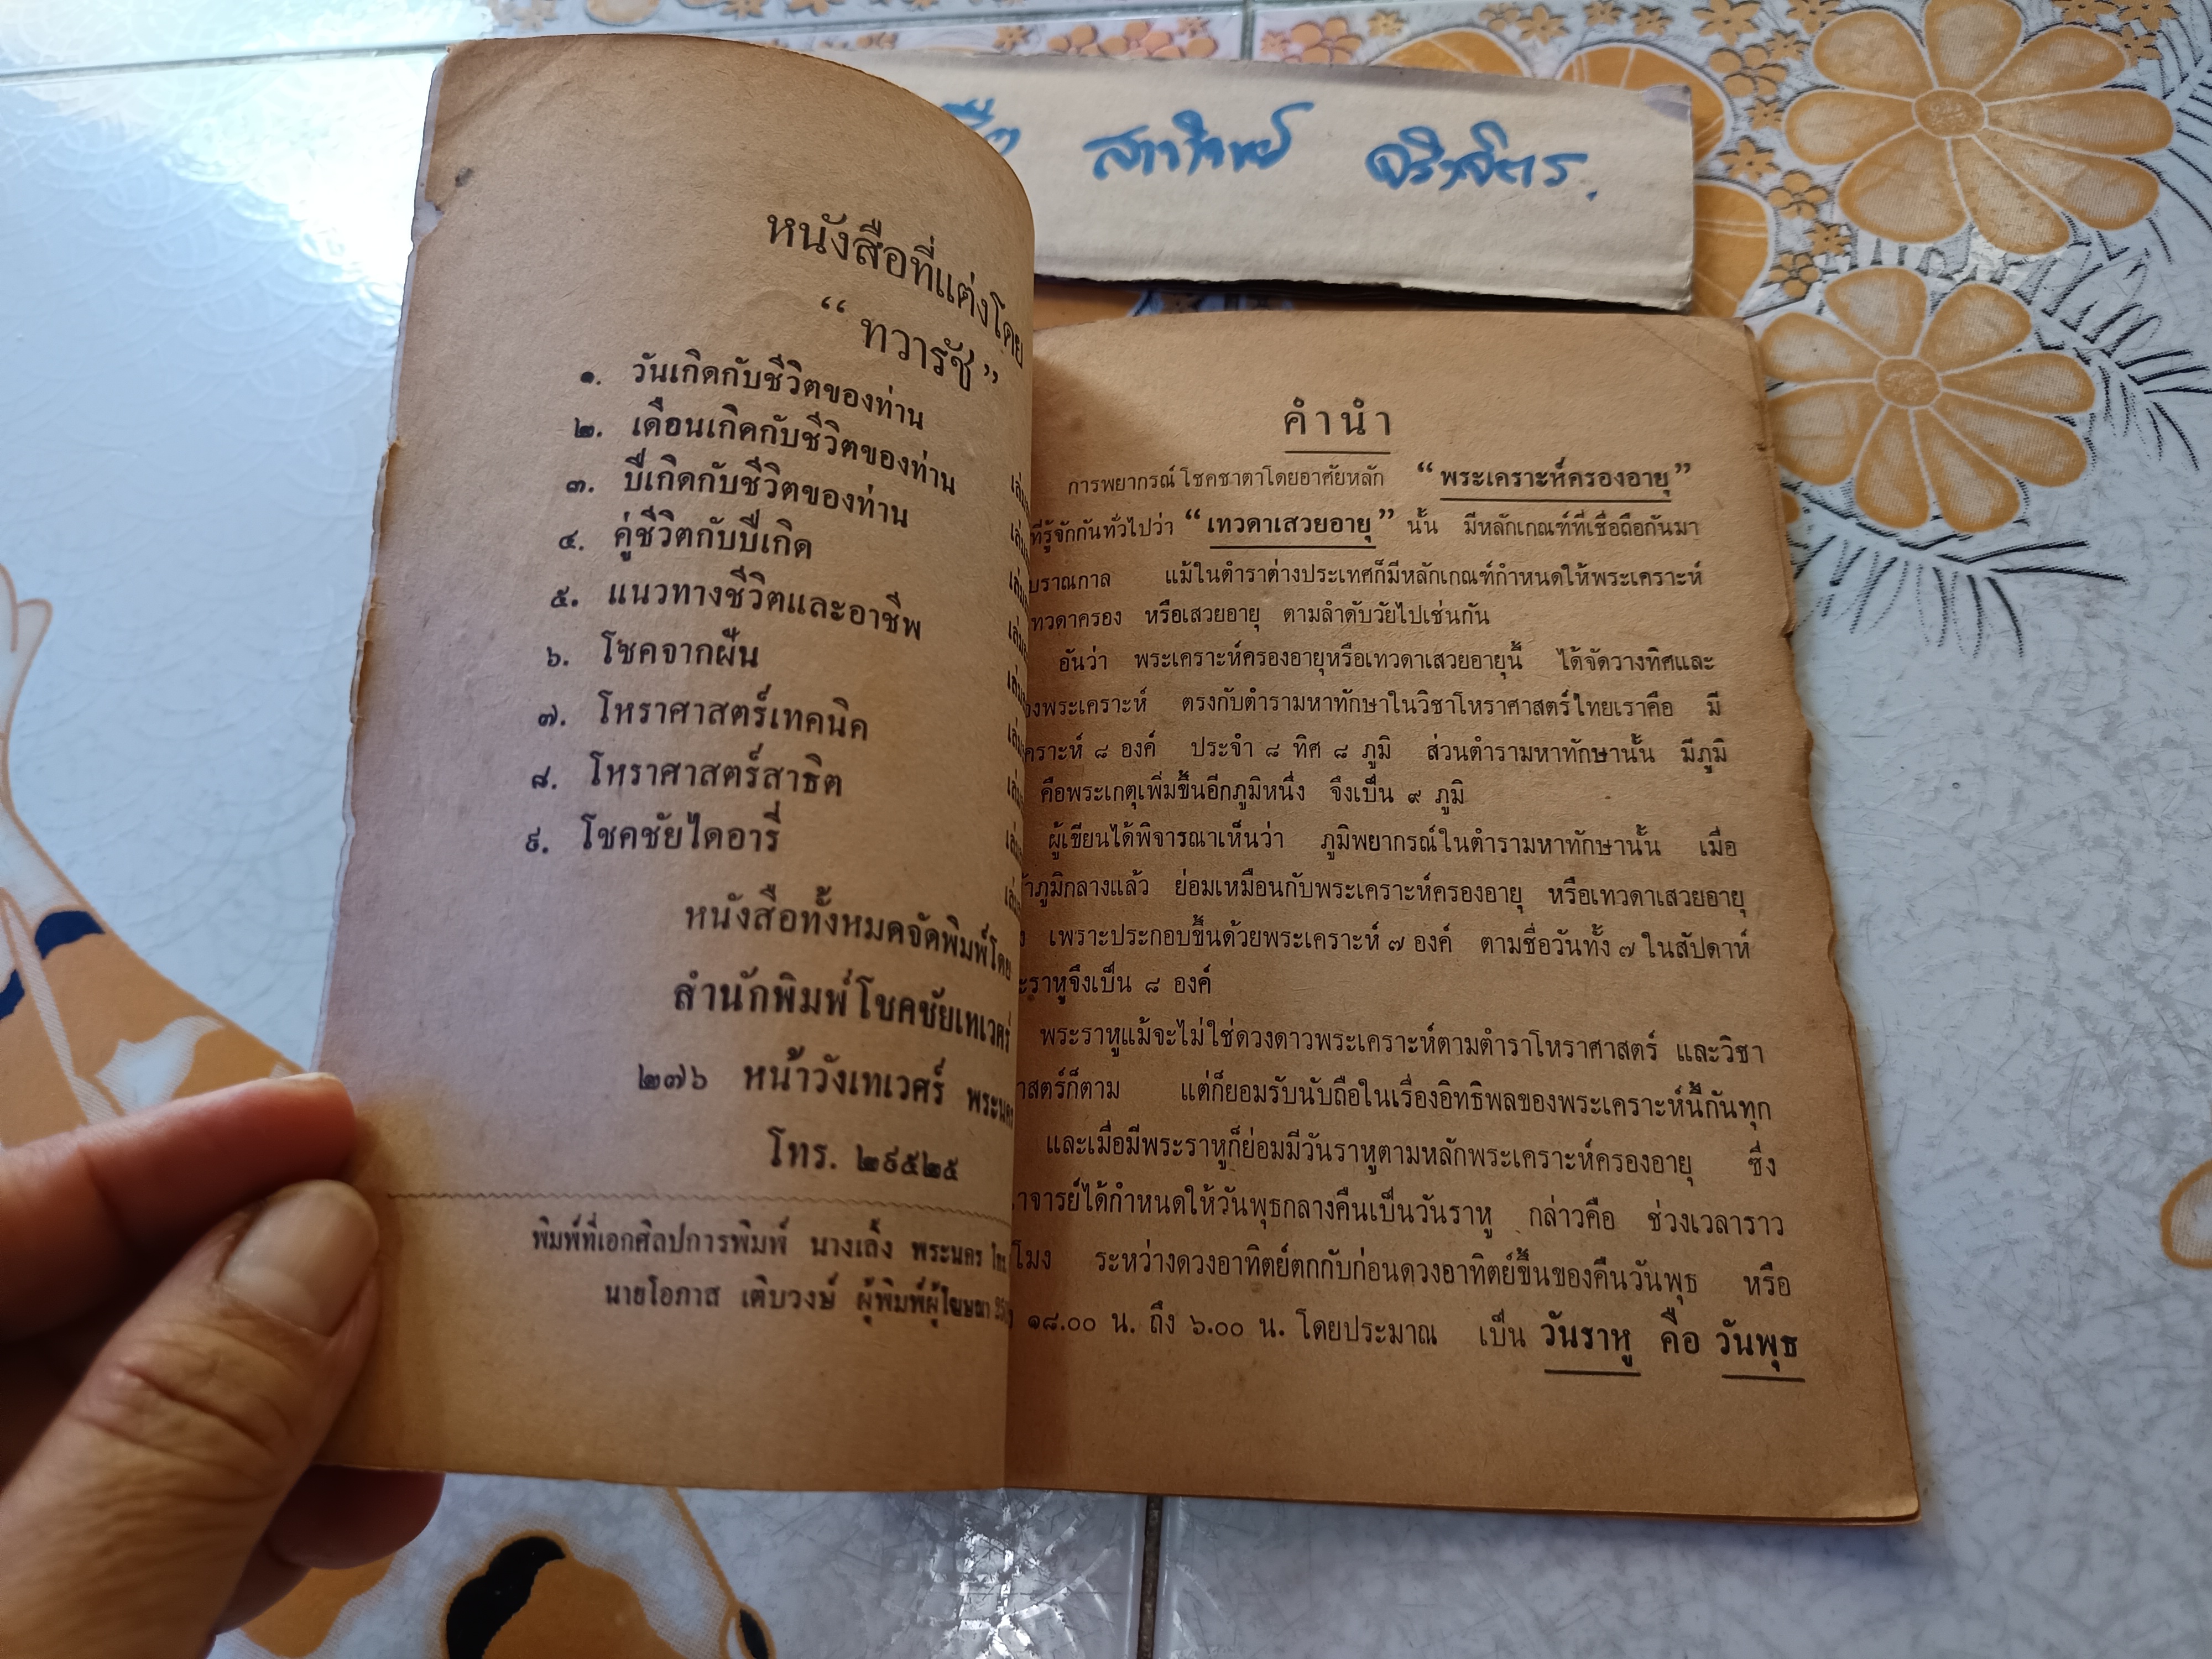 สาวิทย์ จริงจิตร.
หนังสือที่แต่งโดย
“ ทวารัช ”
๑. วันเกิดกับชีวิตของท่าน
๒. เดือนเกิดกับชีวิตของท่าน
๓. ปีเกิดกับชีวิตของท่าน
๔. คู่ชีวิตกับปีเกิด
๕. แนวทางชีวิตและอาชีพ
๖. โชคจากฝัน
๗. โหราศาสตร์เทคนิค
๘. โหราศาสตร์สาธิต
๙. โชคชัยไดอารี่
หนังสือทั้งหมดจัดพิมพ์โดย
สำนักพิมพ์โชคชัยเทเวศร์
๒๗๖ หน้าวังเทเวศร์ พระนคร
โทร. ๒๙๕๒๕
พิมพ์ที่เอกศิลปการพิมพ์ นางเลิ้ง พระนคร โทร.
นายโอภาส เติบวงษ์ ผู้พิมพ์ผู้โฆษณา
คำนำ
การพยากรณ์โชคชาตาโดยอาศัยหลัก “ พระเคราะห์ครองอายุ ”
ที่รู้จักกันทั่วไปว่า “ เทวดาเสวยอายุ ” นั้น มีหลักเกณฑ์ที่เชื่อถือกันมา
บราณกาล แม้ในตำราต่างประเทศก็มีหลักเกณฑ์กำหนดให้พระเคราะห์
ทวดาครอง หรือเสวยอายุ ตามลำดับวัยไปเช่นกัน
อันว่า พระเคราะห์ครองอายุหรือเทวดาเสวยอายุนี้ ได้จัดวางทิศและ
พระเคราะห์ ตรงกับตำรามหาทักษาในวิชาโหราศาสตร์ไทยเราคือ มี
คราะห์ ๘ องค์ ประจำ ๘ ทิศ ๘ ภูมิ ส่วนตำรามหาทักษานั้น มีภูมิ
คือพระเกตุเพิ่มขึ้นอีกภูมิหนึ่ง จึงเป็น ๙ ภูมิ
ผู้เขียนได้พิจารณาเห็นว่า ภูมิพยากรณ์ในตำรามหาทักษานั้น เมื่อ
ภูมิกลางแล้ว ย่อมเหมือนกับพระเคราะห์ครองอายุ หรือเทวดาเสวยอายุ
เพราะประกอบขึ้นด้วยพระเคราะห์ ๗ องค์ ตามชื่อวันทั้ง ๗ ในสัปดาห์
ะราหูจึงเป็น ๘ องค์
พระราหูแม้จะไม่ใช่ดวงดาวพระเคราะห์ตามตำราโหราศาสตร์ และวิชา
าสตร์ก็ตาม แต่ก็ยอมรับนับถือในเรื่องอิทธิพลของพระเคราะห์นี้กันทุก
และเมื่อมีพระราหูก็ย่อมมีวันราหูตามหลักพระเคราะห์ครองอายุ ซึ่ง
าจารย์ได้กำหนดให้วันพุธกลางคืนเป็นวันราหู กล่าวคือ ช่วงเวลาราว
โมง ระหว่างดวงอาทิตย์ตกกับก่อนดวงอาทิตย์ขึ้นของคืนวันพุธ หรือ
๑๘.๐๐ น. ถึง ๖.๐๐ น. โดยประมาณ เป็น วันราหู คือ วันพุธ